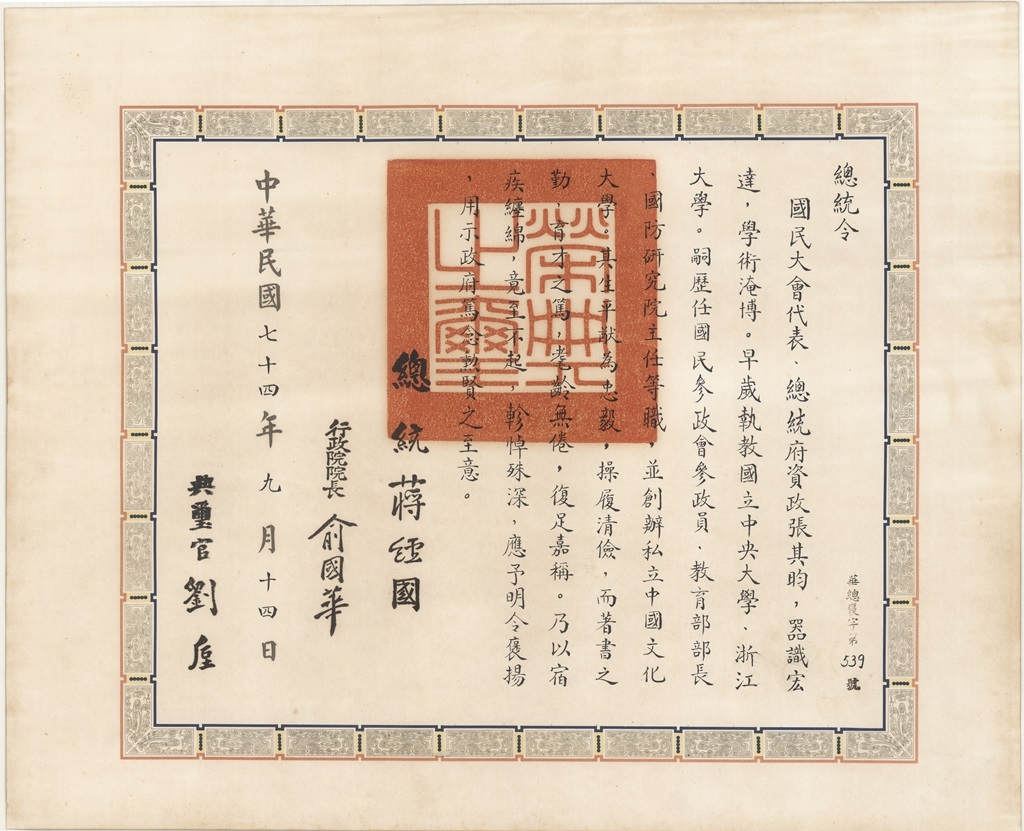 總統令
華總褒字第539號
國民大會代表、總統府資政張其昀，器識宏
達，學術淹博。早歲執教國立中央大學、浙江
大學。嗣歷任國民參政會參政員、教育部部長
、國防研究院主任等職，並創辦私立中國文化
大學。其生平猷為忠毅，操履清儉，而著書之
勤，育才之篤，耄齡無倦，復足嘉稱。乃以宿
疾纏綿，竟至不起，軫悼殊深，應予明令褒揚
，用示政府篤念勳賢之至意。
榮典之璽
總統 蔣經國
行政院院長 俞國華
中華民國七十四年九月十四日
典璽官 劉垕